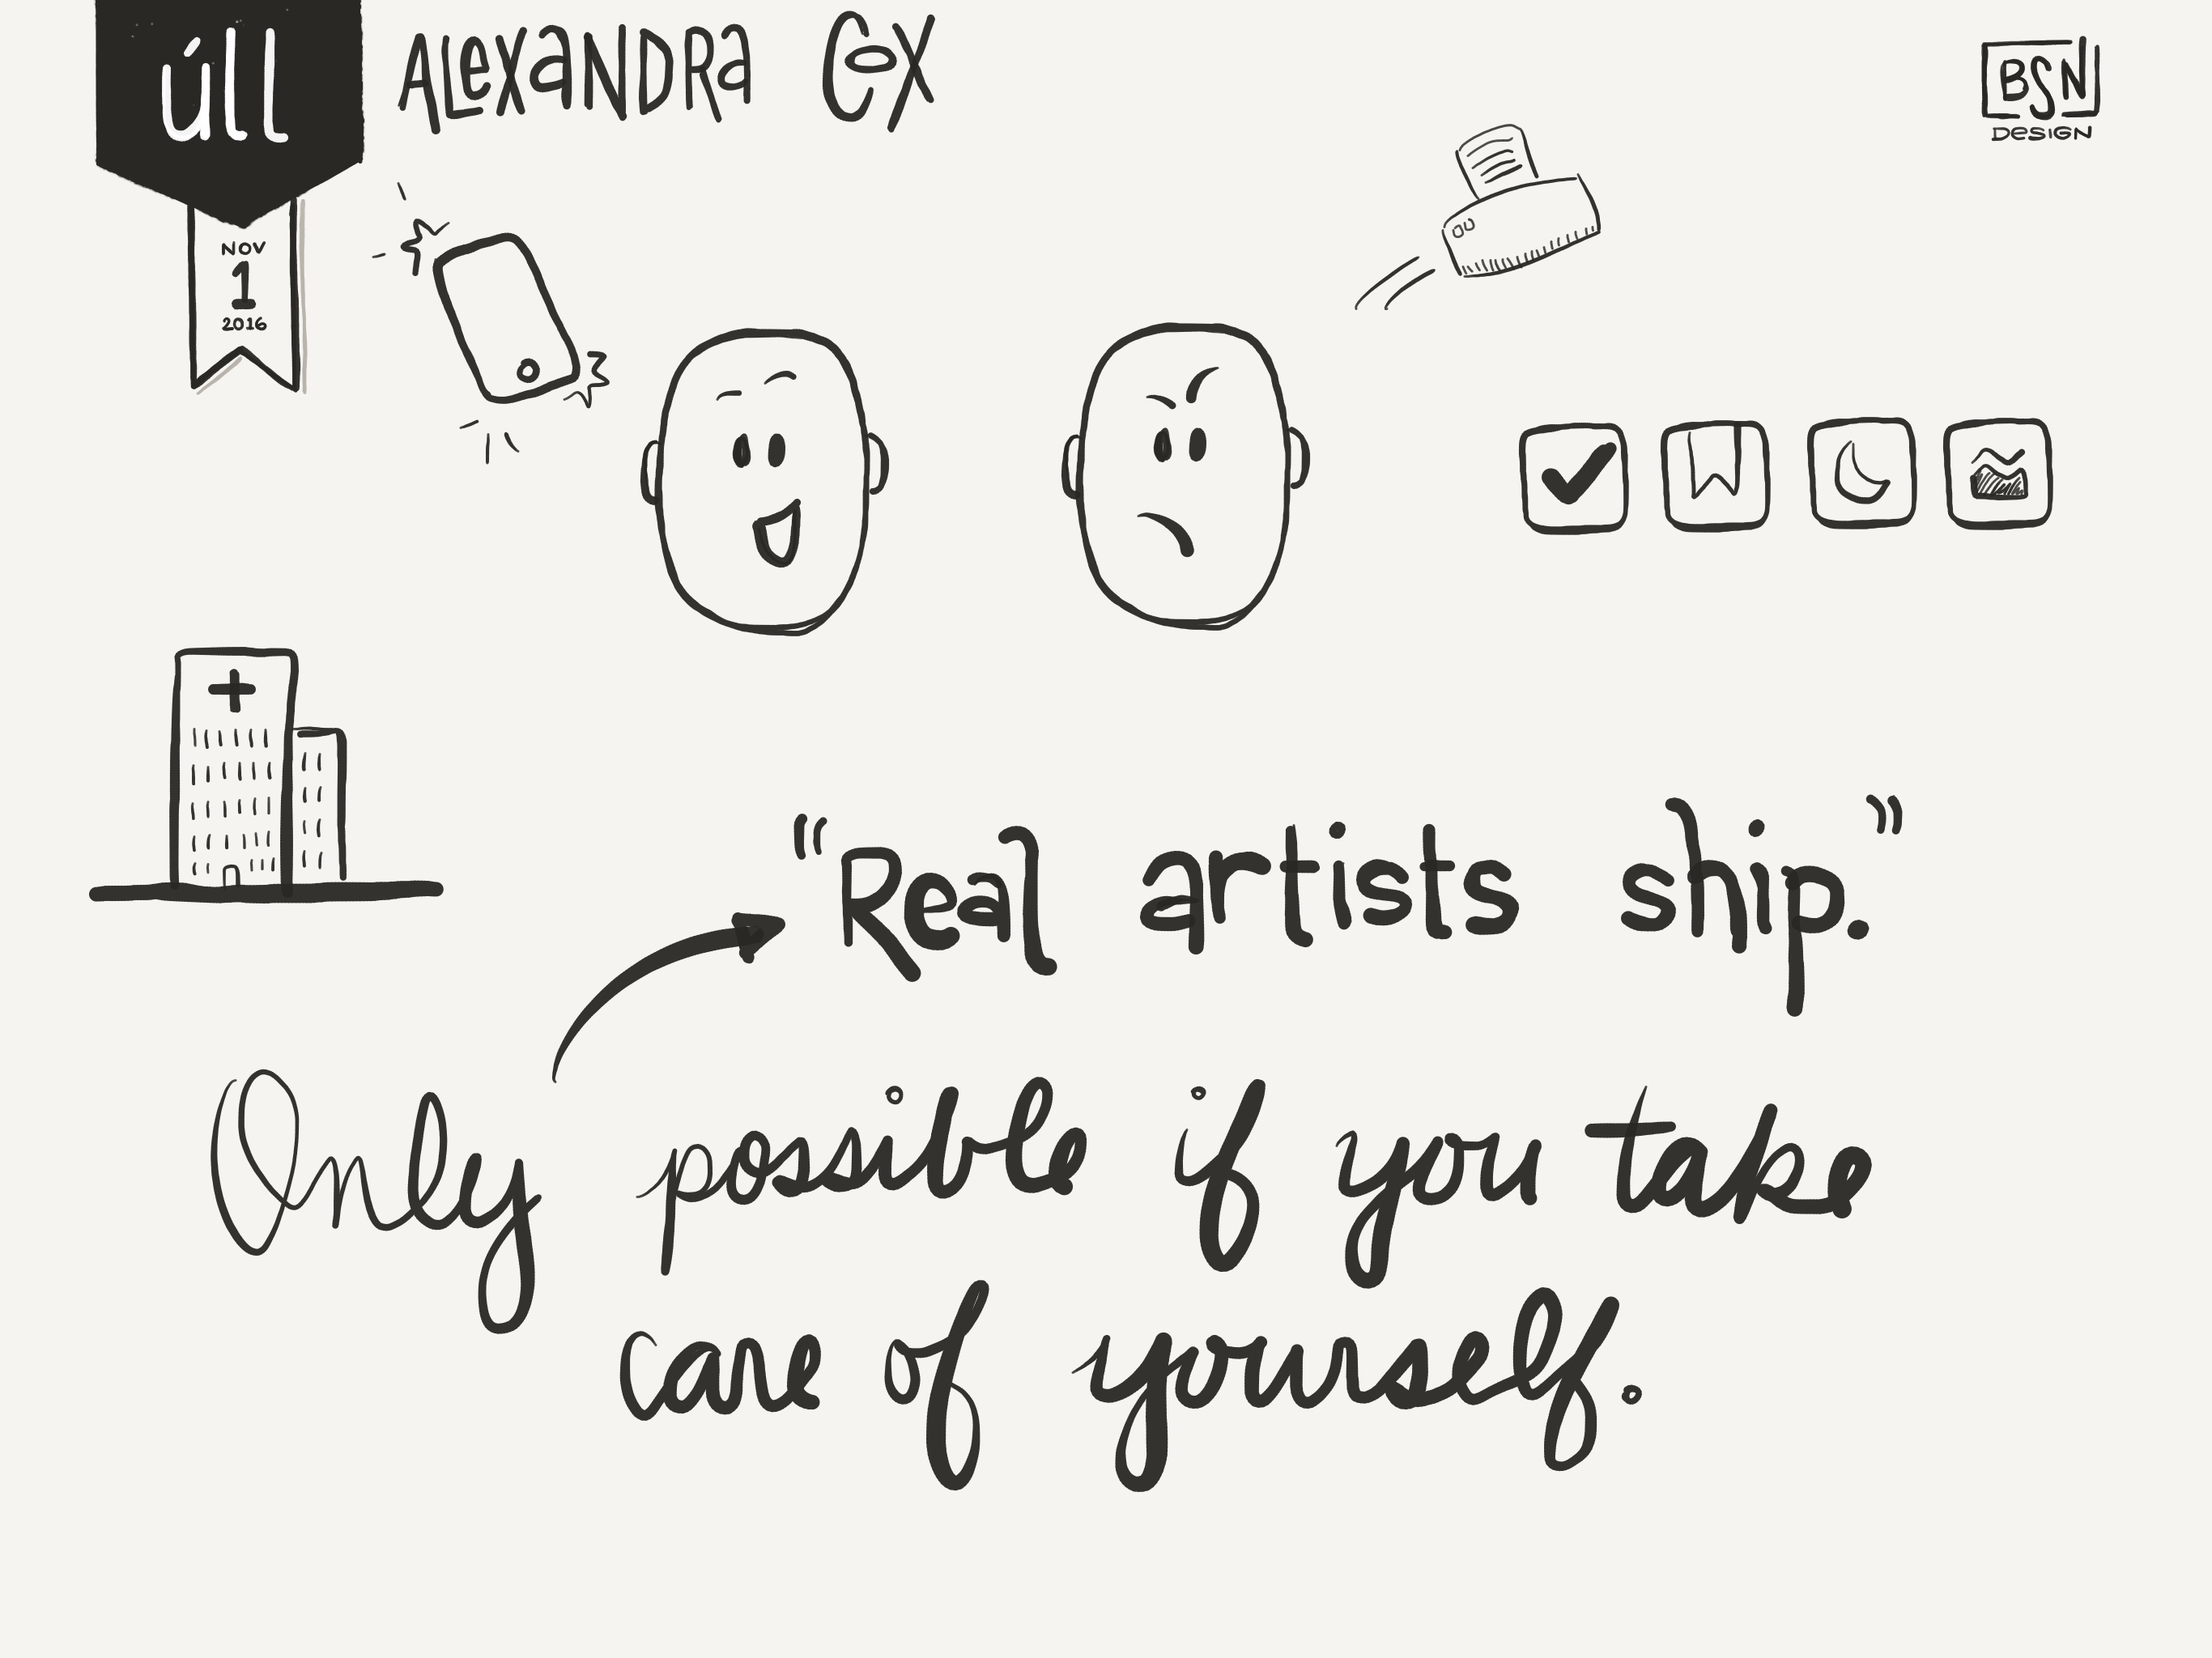 úll
ALEXANDRA COX
BSN
DESIGN
NOV
1
2016
"Real artists ship."
Only possible if you take
care of yourself.